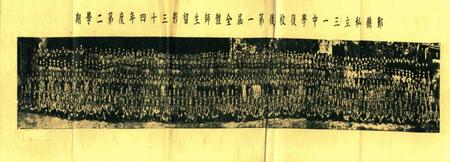 鄞縣私立三一中學復校後第一屆全體師生留影三十四年度第二學期